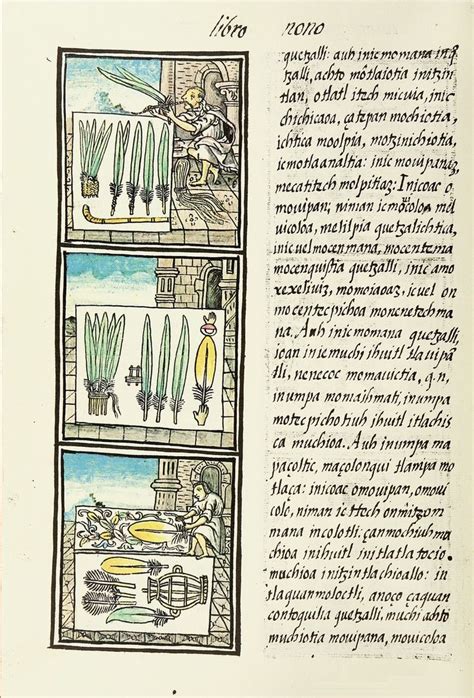 libro nono
quetzalli: auh inic momana in q̃
tzalli, achto motlaiotia initzin
tlan, otlatl itech micuia, inic
chichicaoa, çatepan mochiotia,
ichtica moolpia, motzinichiotia,
icmotlaanaltia: inic movipanez,
mecatitech molpitiaz: Inicoac o
movipan; niman ic mocoloa, mel
vicoloa, melilpia quetzalichtica,
inic vel mocenmana, mocentema
mocenquistia quetzalli, inic amo
xexeliviz, momoiaoaz, ic vel on
mocentecpichoa monenetech ma
na. Auh inic momana quetzalli,
ioan inic muchi ihuitl tlavipã
tli, nenecoc momavietia, q.n,
inumpa momaihmati, inumpa
motecpichotiuh ihuitl itlachis
ca muchioa. Auh inumpa ma
pacoltic, macolonqui tlampa mo
tlaça: inicoac omovipan, omovi
colo, niman ic itech onmitzom
mana incolotli: çan mochiuhti
uchioa inihuitl initlatlatocio
muchioa initzintlachioallo: in
tlaquanmoloctli, anoco caquan
contoquilia quetzalli, muchi achto
muchiotia movipana, movicoloa